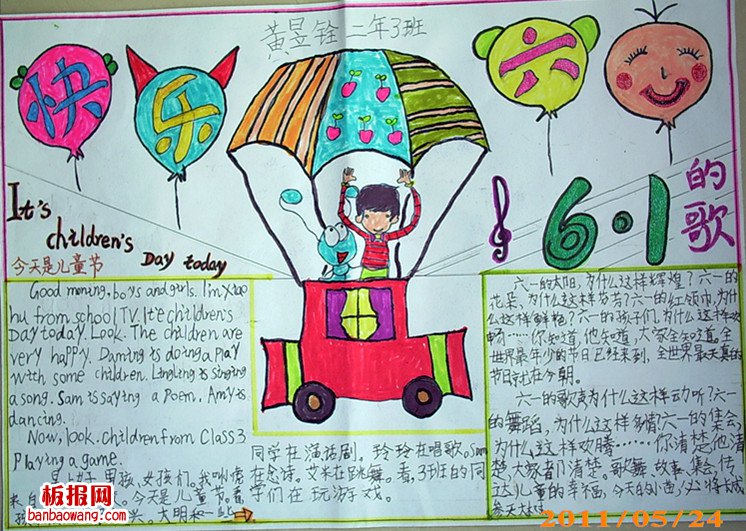 黄昱铨 二年3班
快乐六一
It's
children's
Day today
今天是儿童节
6·1
的歌
Good morning, boys and girls. I'm xiao
hu from school TV. It's children's
Day today. Look. The children are
very happy. Daming is doing a play
with some children. Lingling is singing
a song. Sam is saying a poem. Amy is
dancing.
Now, look. children from Class 3
Playing a game.
早上好,男孩、女孩们。我叫虎
今天是儿童节。看
兴。大明
同学在演话剧。玲玲在唱歌。Sam
在念诗。艾米在跳舞。看,3班的同
学们在玩游戏。
六一的太阳,为什么这样辉煌?六一的
花是,为什么这样芬芳?六一的红领巾,为什
么这样鲜艳?六一的孩子们,为什么这样欢
畅……你知道,他知道,大家全知道。全
世界最年少的节日已经来到,全世界最天真的
节日就在今朝。
六一的歌为什么这样动听?六一
的舞蹈,为什么这样多情?六一的集会,
为什么这样欢腾……你清楚他清
楚,大家都清楚。歌舞、故事、集会,传
达儿童的幸福,今天的小苗,必将长成
参天大树。
板报网
banbaowang.com
2011/05/24